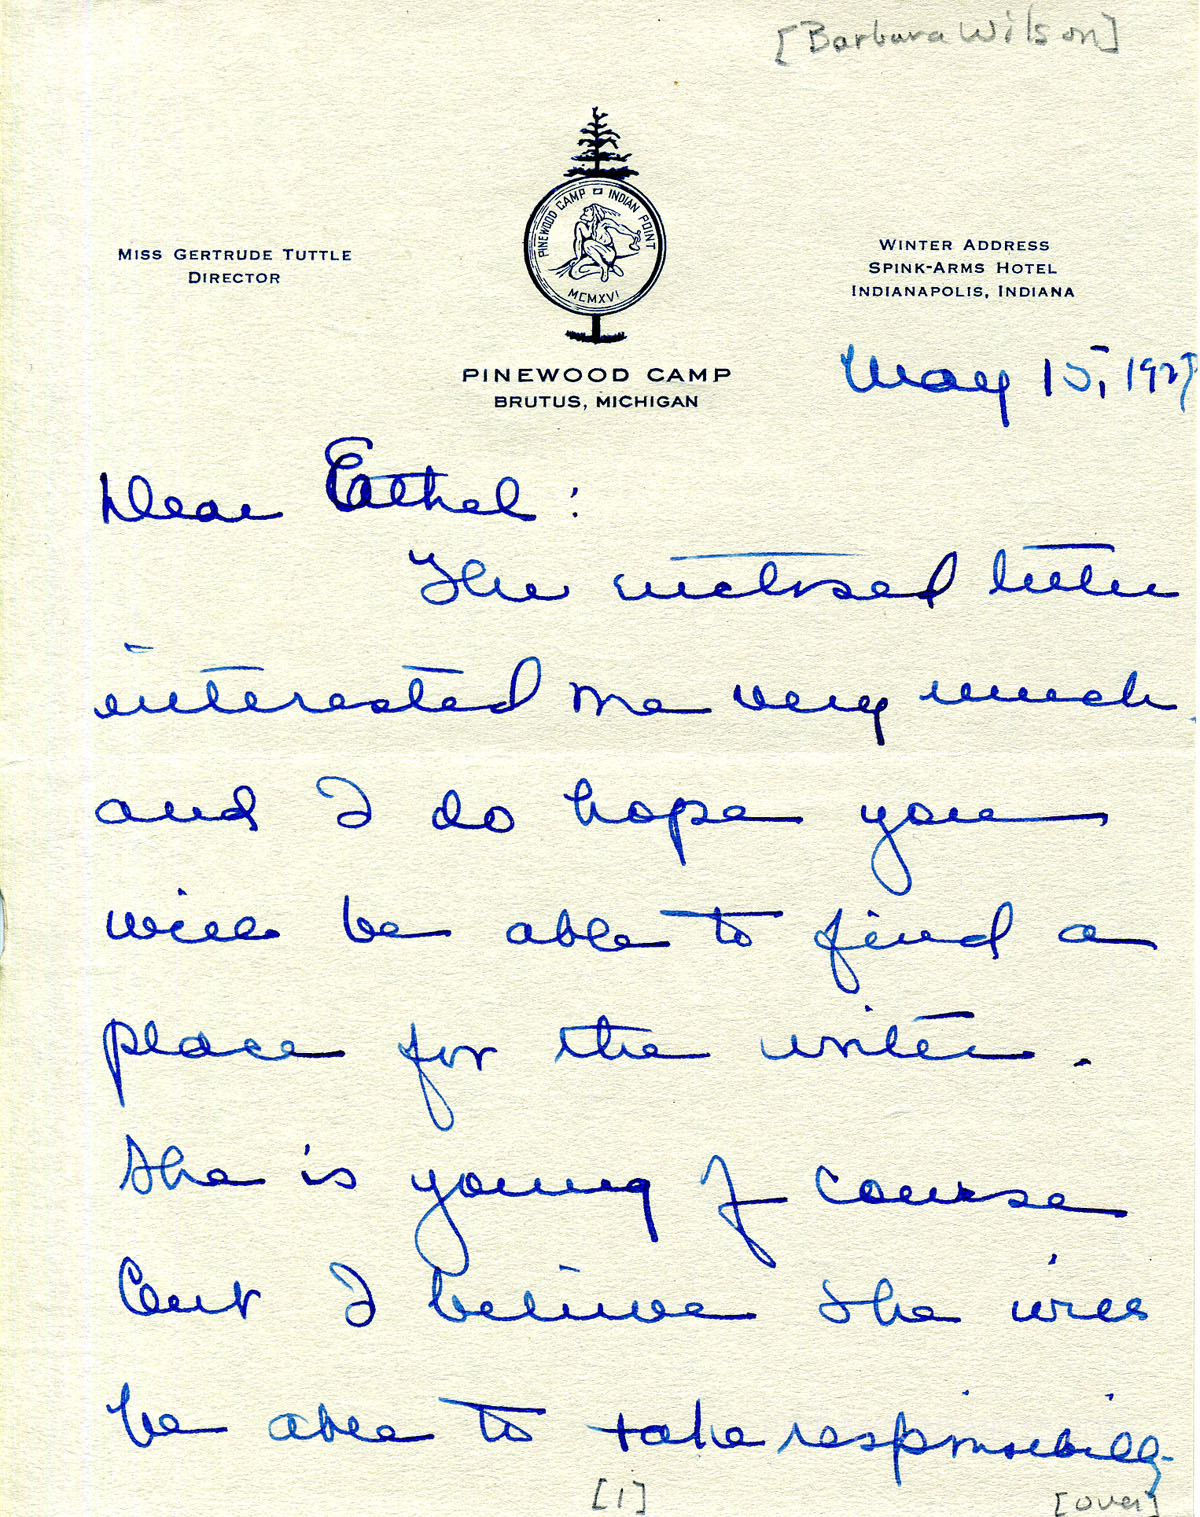 [Barbara Wilson]
PINEWOOD CAMP INDIAN POINT
MCMXVI
MISS GERTRUDE TUTTLE
DIRECTOR
WINTER ADDRESS
SPINK-ARMS HOTEL
INDIANAPOLIS, INDIANA
PINEWOOD CAMP
BRUTUS, MICHIGAN
May 15, 192
Dear Ethel:
The enclosed letter
interested me very much
and I do hope you
will be able to find a
place for the writer.
She is young of course
but I believe she will
be able to take responsibility
[1]
[over]